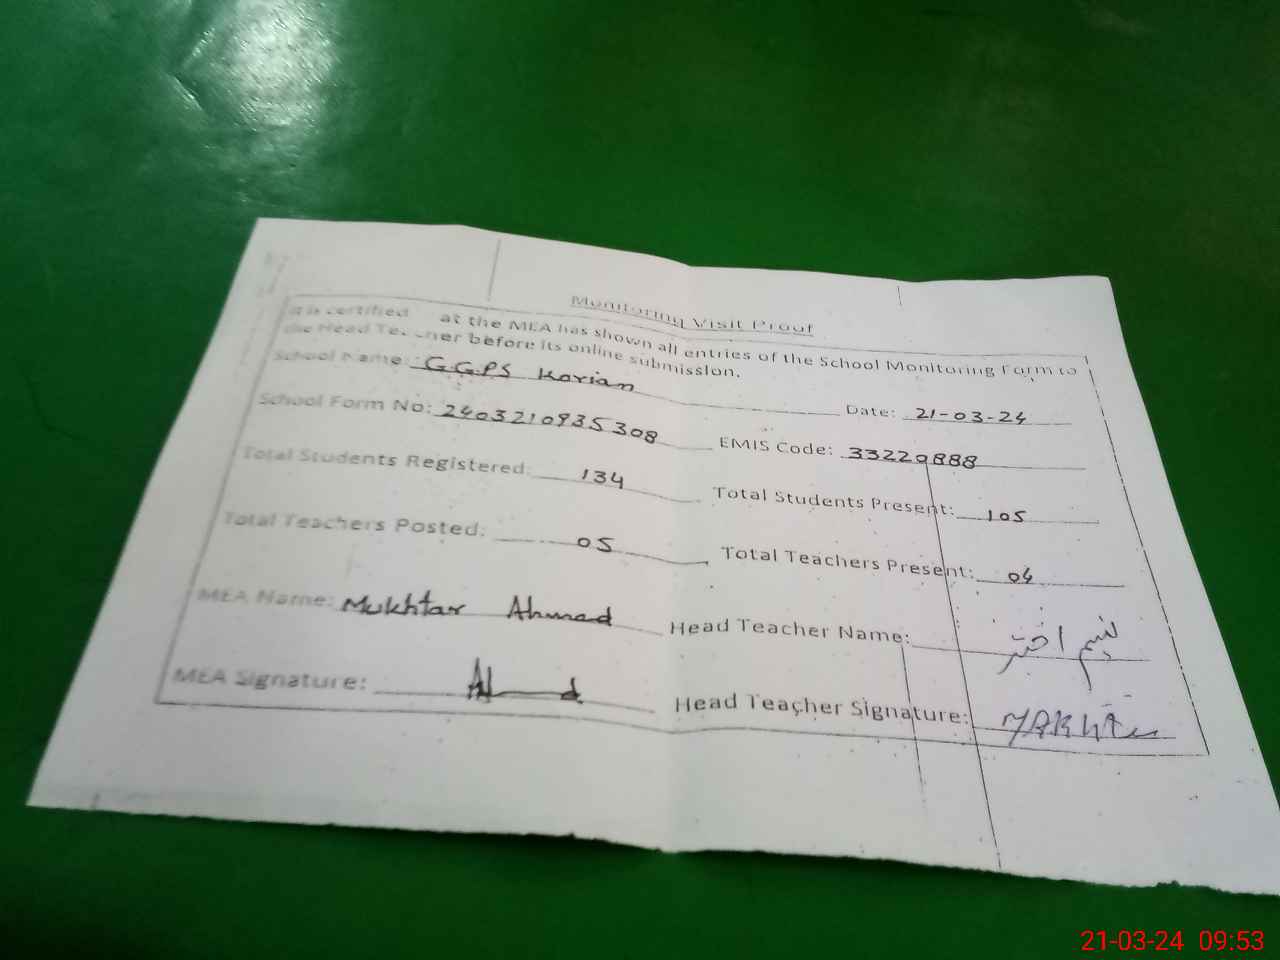 Monitoring Visit Proof
It is certified at the MEA has shown all entries of the School Monitoring Form to
the Head Teacher before its online submission.
School Name: G.G.P.S Korian Date: 21-03-24
School Form No: 2403210935308 EMIS Code: 33220888
Total Students Registered: 134 Total Students Present: 105
Total Teachers Posted: 05 Total Teachers Present: 04
MEA Name: Mukhtar Ahmad Head Teacher Name: اختر
MEA Signature: Head Teacher Signature:
21-03-24 09:53